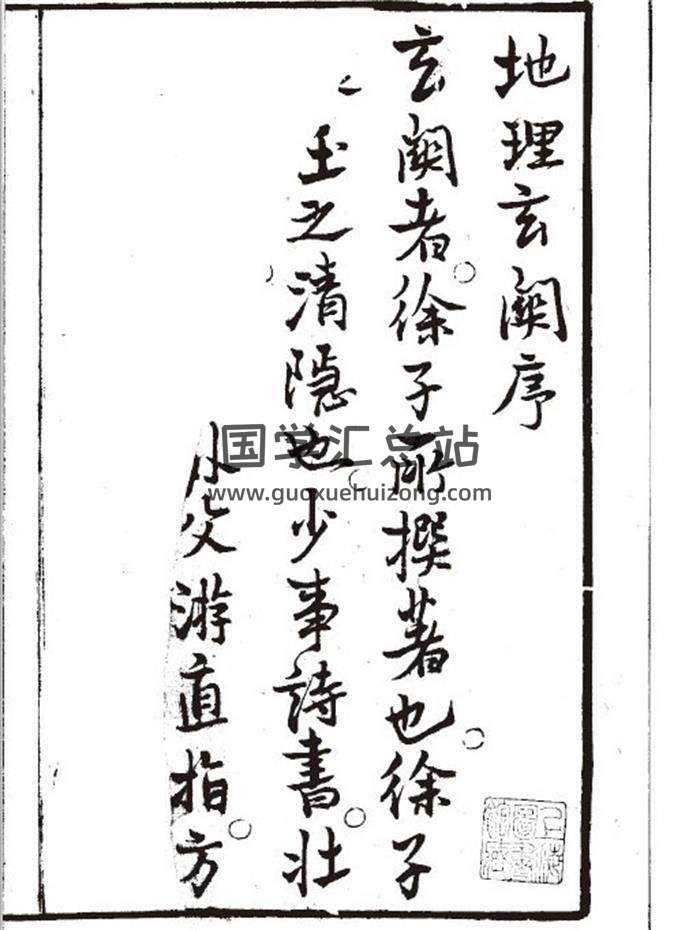 地理玄關序
玄關者徐子所撰著也徐子
玉之清隱也少事詩書壯
父游直指方
国学汇总站
www.guoxuehuizong.com